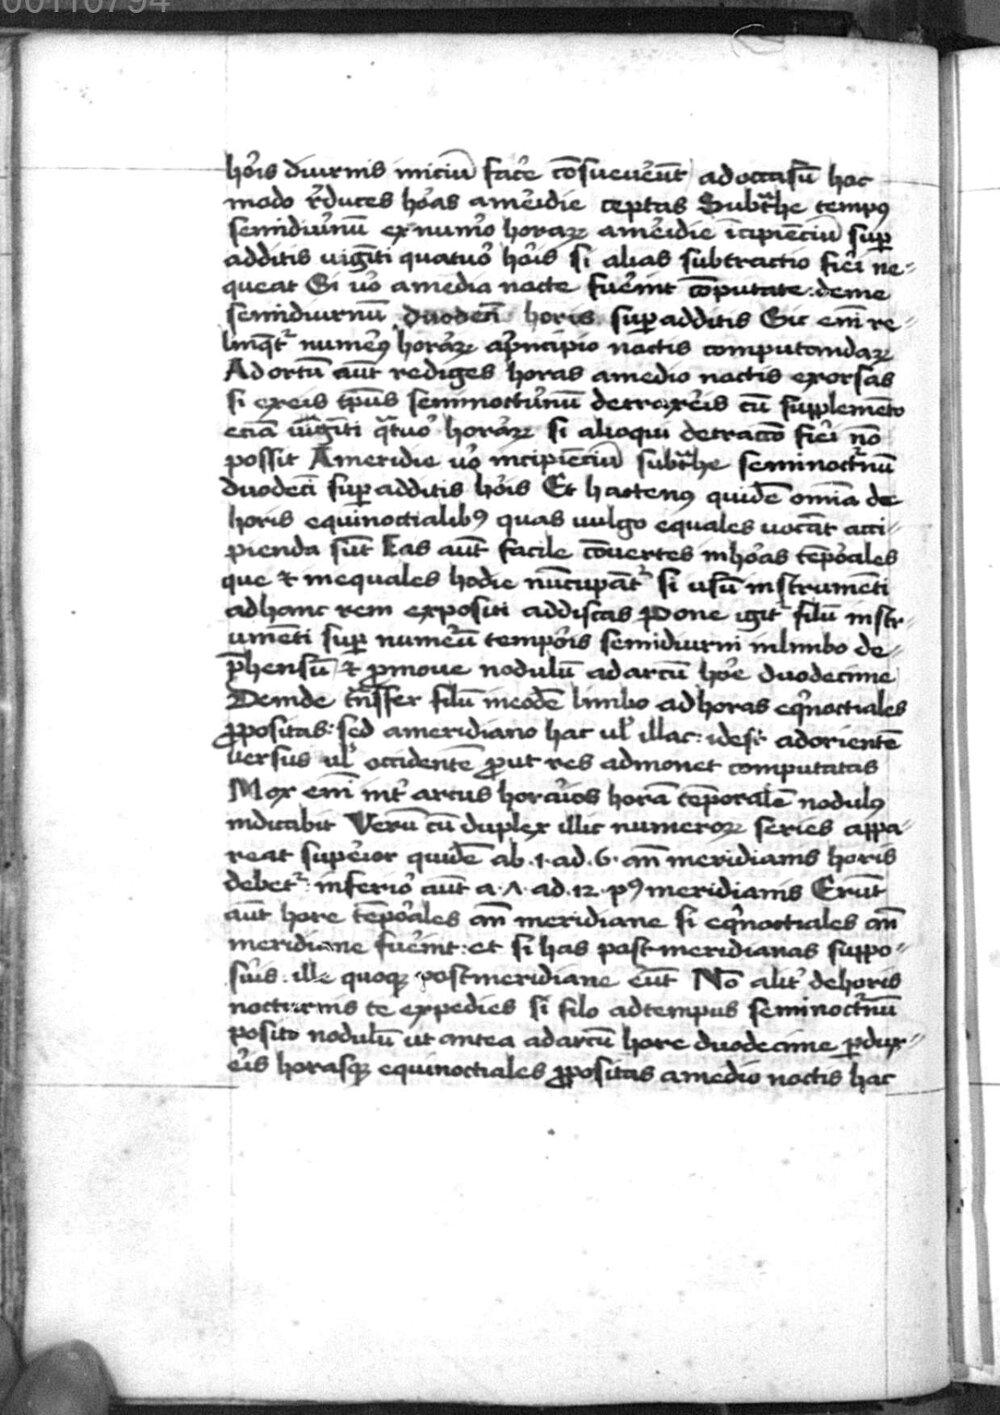 00110794
hoꝛ̃is diurnis iniciũ facẽ cõsueuerũt ad occasũ hac
modo rẽduces hoꝛ̃as ameridie ceptas Subtrͣhe tempꝰ
semidiurnũ ex numero horaꝝ ameridie ĩcipiẽciũ suꝑ
additis uigĩti quatuoꝛ hoꝛ̃is si alias subtractio fieri ne⸗
queat Si uo᷒ amedia nocte fuerint cõputate: deme
semidiurnũ duodecĩ horis suꝑadditis Sic enĩ re⸗
linqͥt᷒ numerꝰ horaꝝ aprincipio noctis computandaꝝ
Ad ortũ aũt rediges horas amedio noctis exorsas
si ex eis tp̃us seminocturnũ detraxeris cũ supplemẽto
eciã uigĩti qͣtuoꝛ horaꝝ si alioqui detractõ fieri nõ
possit Ameridie uo᷒ incipiẽciũ subtrͣhe seminoctͬnũ
duodecĩ suꝑadditis hoꝛ̃is Et hactenꝰ quidẽ omĩa de
horis equinoctialibꝰ quas uulgo equales uocãt acci⸗
pienda sũt Eas aũt facile cõuertes inhoꝛ̃as tẽporales
que et inequales hodie nũcupãt᷒ si usũ instrumẽti
adhanc rem expositi addiscas Pone igit᷒ filũ instr⸗
umẽti suꝑ numerũ temporis semidiurni inlimbo de⸗
p̃hensũ et ꝓmoue nodulũ ad arcũ hore duodecime
Deinde trͣnsfer filũ ineodẽ limbo ad horas eqͥnoctiales
ꝓpositas: sed ameridiano hac ul᷒ illac: idest adorientẽ
uersus ul᷒ occidentẽ ꝓut res admonet computatas
Mox enĩ int᷒ arcus horarios horã tẽporalẽ nodulꝰ
indicabit Verũ cũ duplex illic numeroꝝ series appa⸗
reat superior quidẽ ab .1. ad .6. an̄ meridianis horis
debet᷒: inferioꝛ aũt a .7. ad .12. pꝰmeridianis Erũt
aũt hore tẽporales an̄ meridiane si eqͥnoctiales an̄
meridiane fuerint: et si has post meridianas suppo⸗
suis: ille quoqꝫ postmeridiane erũt Nõ alit᷒ dehoris
nocturnis te expedies si filo adtempus seminoctͬnũ
posito nodulũ ut antea ad arcũ hore duodecime ꝑdux⸗
eris horasqꝫ equinoctiales ꝓpositas amedio noctis hac